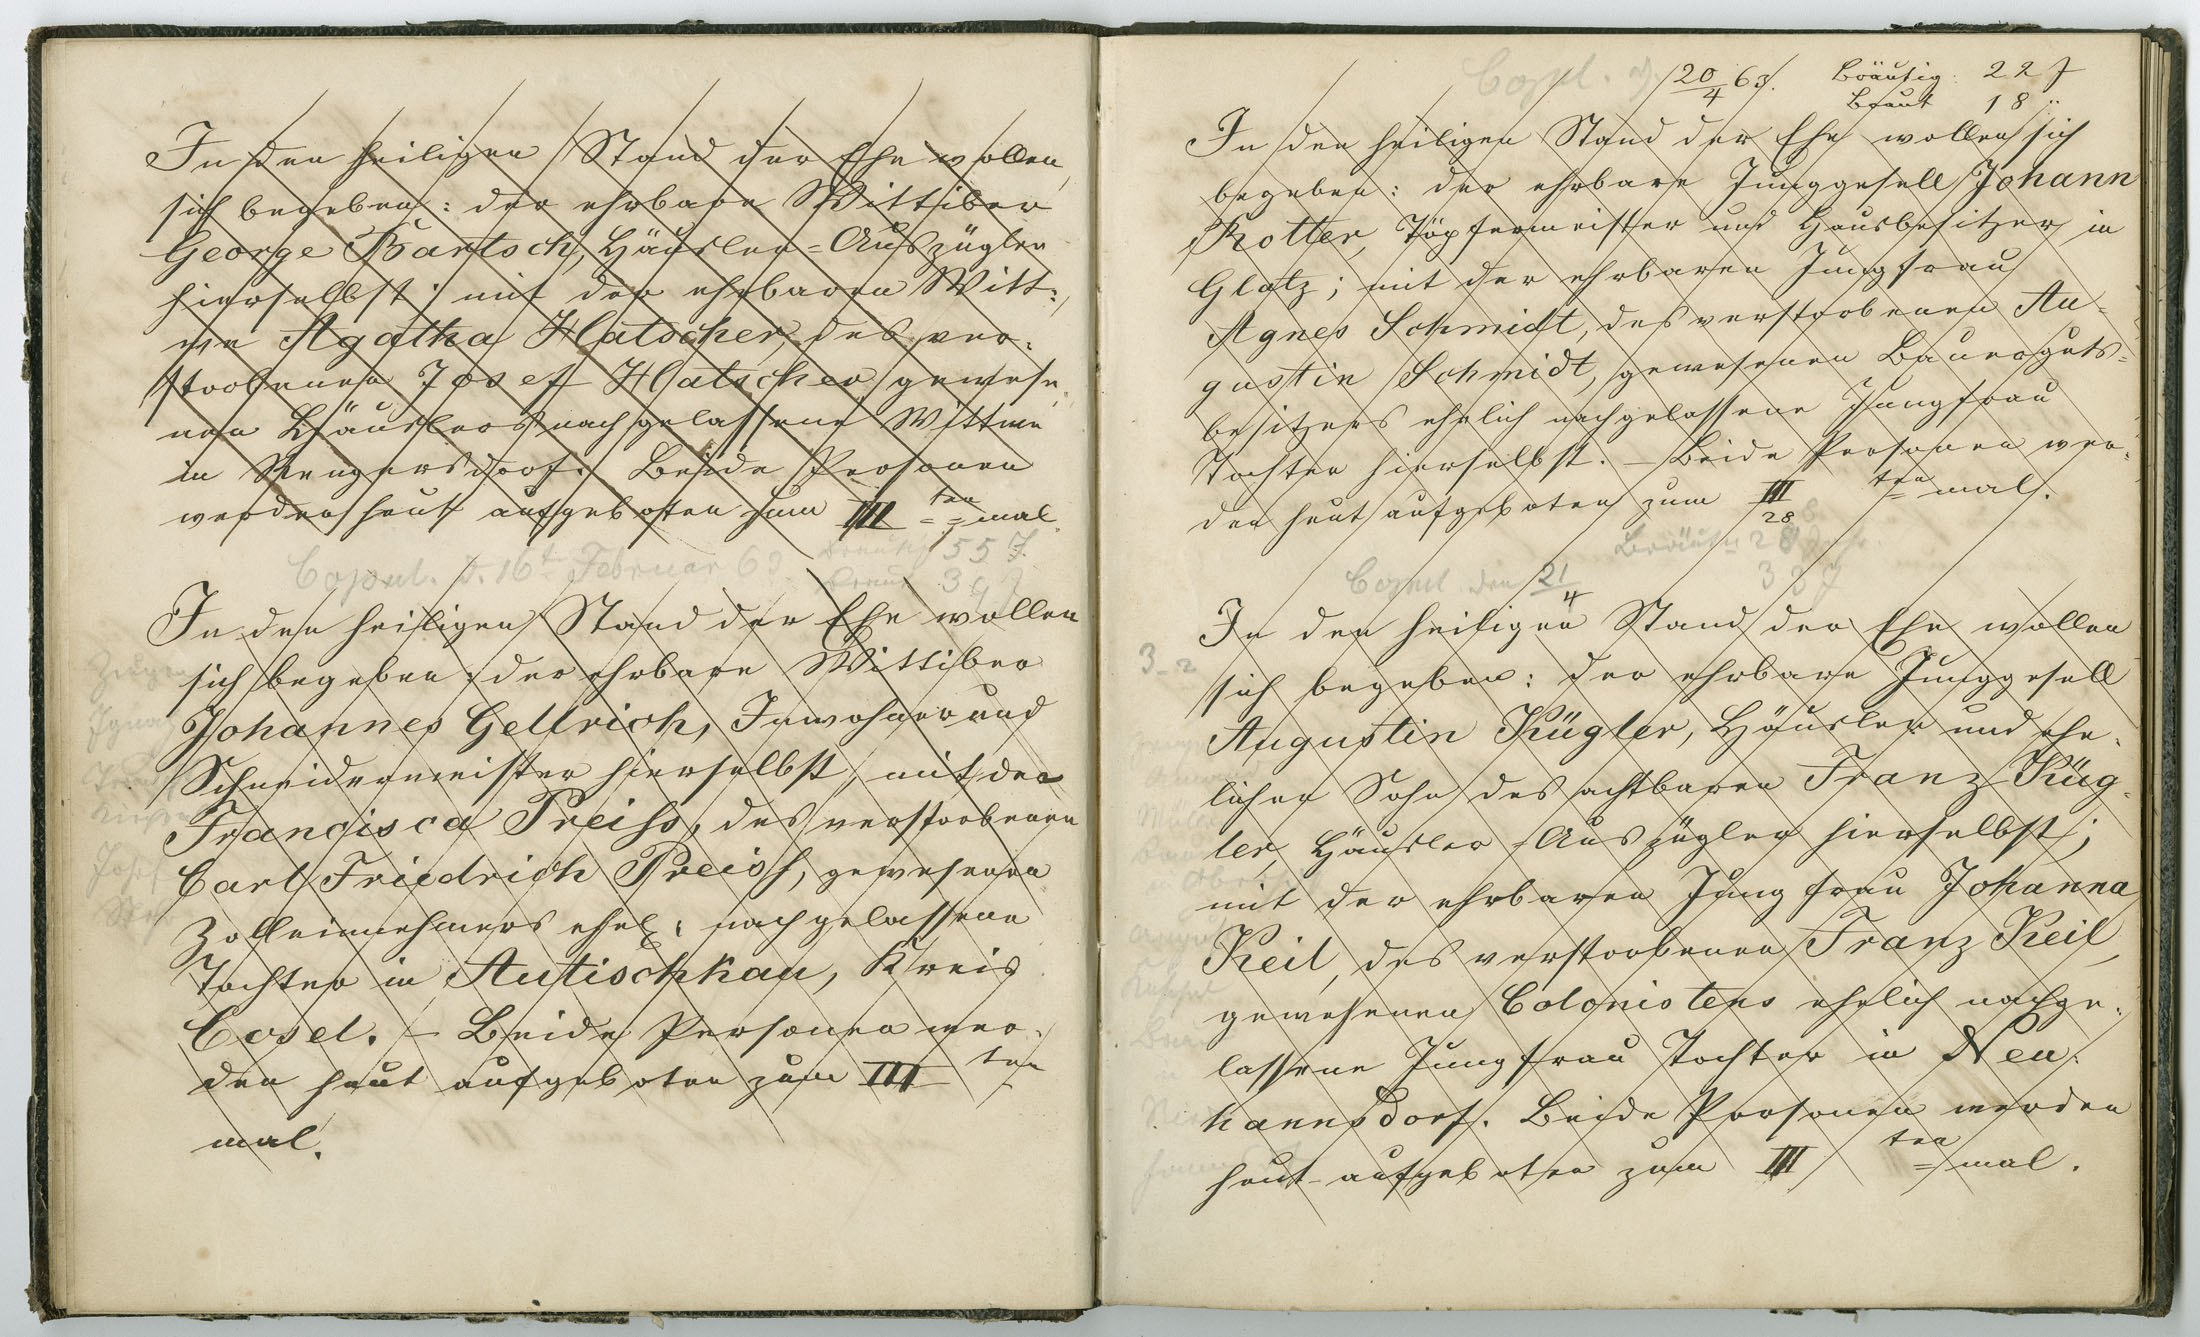 In den heiligen Stand der Ehe wollen
sich begeben: der ehrbare Wittiber
George Bartsch, Häusler=Auszügler
hierselbst; mit der ehrbaren Witt=
we Agatha Hatscher, des ver=
storbenen Josef Hatscher gewese=
nen Häuslers nachgelassene Wittwe
in Rengersdorf. Beide Personen
werden heut aufgeboten zum III ten mal.
55 J.
Copul. d. 16t Februar 63
39 J
In den heiligen Stand der Ehe wollen
sich begeben: der ehrbare Wittiber
Johannes Gellrich, Inwohner und
Schneidermeister hierselbst, mit der
Francisca Preiss, des verstorbenen
Carl Friedrich Preiss, gewesenen
Zolleinnehmers ehel: nachgelassene
Tochter in Autischkau, Kreis
Cosel. – Beide Personen wer=
den heut aufgeboten zum III ten
mal.
Zeugen
Josef
Copul. d. 20/4 63. Bräutig: 22 J
Braut 18 "
In den heiligen Stand der Ehe wollen sich
begeben: der ehrbare Junggesell Johann
Rotter, Töpfermeister und Hausbesitzer in
Glatz; mit der ehrbaren Jungfrau
Agnes Schmidt, des verstorbenen Au=
gustin Schmidt, gewesenen Bauerguts=
besitzers ehelich nachgelassene Jungfrau
Tochter hierselbst. – Beide Personen wer=
den heut aufgeboten zum III ten mal.
28
Bräut: 28 Jahr.
Copul den 21/4
33 J
In den heiligen Stand der Ehe wollen
3-2
sich begeben: der ehrbare Junggesell
Augustin Kügler, Häusler und ehe=
licher Sohn des achtbaren Franz Küg=
ler, Häusler-Auszügler hierselbst;
mit der ehrbaren Jungfrau Johanna
Keil, des verstorbenen Franz Keil,
gewesenen Colonistens ehelich nachge=
lassene Jungfrau Tochter in Neu=
hannsdorf. Beide Personen werden
heut aufgeboten zum III ten mal.